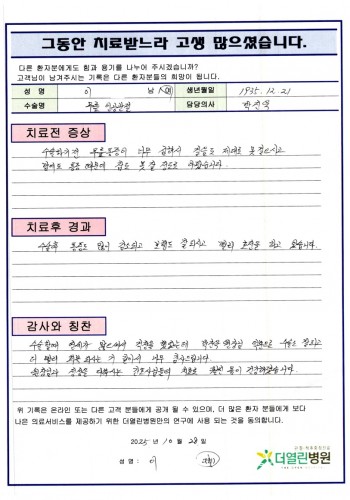 그동안 치료받느라 고생 많으셨습니다.
다른 환자분에게도 힘과 용기를 나누어 주시겠습니까?
고객님이 남겨주시는 기록은 다른 환자분들의 희망이 됩니다.
성 명 이 남 여 생년월일 1935. 12. 21
수술명 무릎 인공관절 담당의사 박진억
치료전 증상
수술하기전 무릎통증이 너무 심해서 걸음도 제대로 못걸으시고
밤에도 통증 때문에 잠도 못 잘 정도로
치료후 경과
수술후 통증도 많이 감소되고 보행도 잘되시고 빨리 호전을 하고 있습니다.
감사와 칭찬
수술할때 연세가 많으셔서 걱정을 했었는데 박진억 병원장 덕분으로 수술도 잘되고
더 빨리 회복 되시는 거 같아서 너무 감사드립니다.
간호사님들께
위 기록은 온라인 또는 다른 고객 분들에게 공개 될 수 있으며, 더 많은 환자 분들에게 보다
나은 의료서비스를 제공하기 위한 더열린병원만의 연구에 사용 되는 것을 동의합니다.
2025년 10월 28일
성 명 : 이
더열린병원